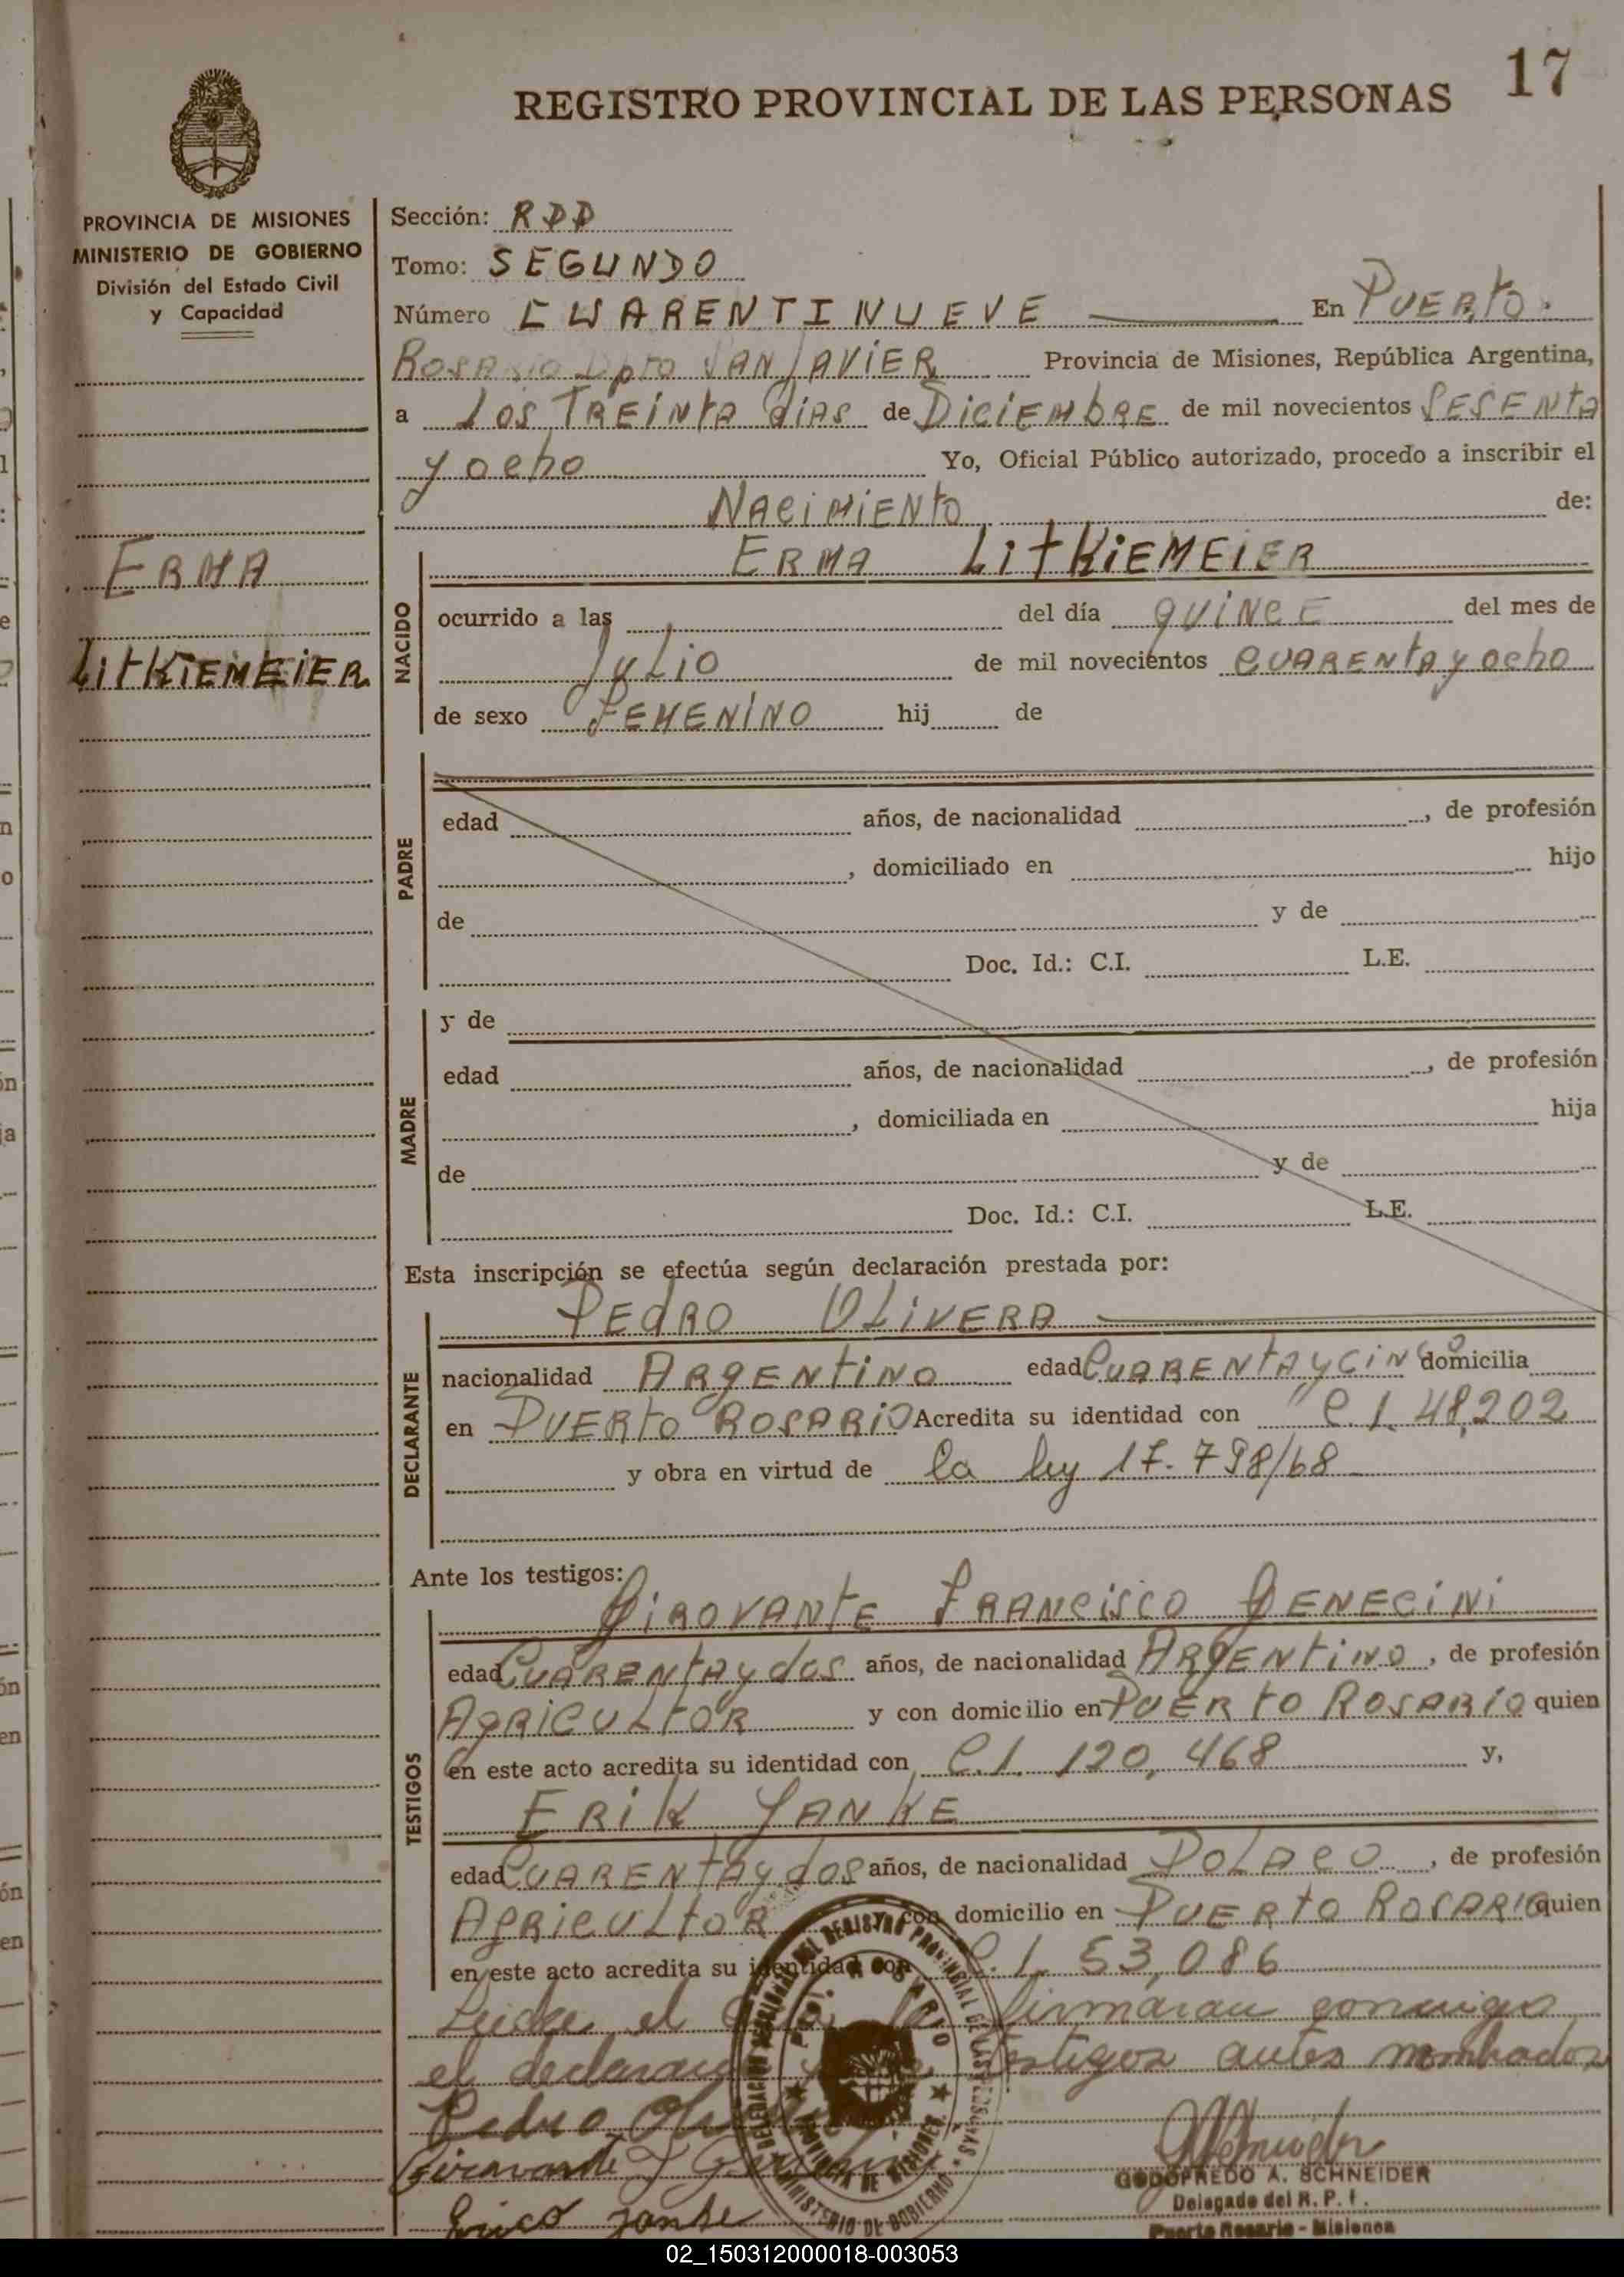 17
REGISTRO PROVINCIAL DE LAS PERSONAS
PROVINCIA DE MISIONES
MINISTERIO DE GOBIERNO
División del Estado Civil
y Capacidad
Sección: RDD
Tomo: SEGUNDO
Número CUARENTINUEVE En PUERTO
ROSARIO Dpto SAN JAVIER Provincia de Misiones, República Argentina,
a LOS TREINTA dIAS de DICIEMBRE de mil novecientos SESENTA
y ocho Yo, Oficial Público autorizado, procedo a inscribir el
NACIMIENTO de:
ERMA
LITKIEMEIER
NACIDO
ERMA LITKIEMEIER
ocurrido a las del día QUINCE del mes de
JULIO de mil novecientos CUARENTA y ocho
de sexo FEMENINO hij de
PADRE
edad años, de nacionalidad , de profesión
, domiciliado en hijo
de y de
Doc. Id.: C.I. L.E.
MADRE
y de
edad años, de nacionalidad , de profesión
, domiciliada en hija
de y de
Doc. Id.: C.I. L.E.
Esta inscripción se efectúa según declaración prestada por:
DECLARANTE
PEdRO OLIVERA
nacionalidad ARgENTINO edad CUARENTAyCINCO domicilia
en PUERTO ROSARIO Acredita su identidad con C.I. 48,202
y obra en virtud de la ley 17.798/68
Ante los testigos:
TESTIGOS
GIROVANTE FRANCISCO GENECINI
edad CUARENTAydos años, de nacionalidad ARGENTINO, de profesión
AGRICULTOR y con domicilio en PUERTO ROSARIO quien
en este acto acredita su identidad con C.I. 120,468 y,
ERIK JANKE
edad CUARENTAydos años, de nacionalidad POLACO, de profesión
AGRICULTOR con domicilio en PUERTO ROSARIO quien
en este acto acredita su identidad con C.I. 53,086
Leida el firmaran conmigo
el testigos antes nombrados
Pedro
Girovante F
Erico Janke
DELEGACION DEL REGISTRO PROVINCIAL DE LAS PERSONAS
PTO. ROSARIO
PROVINCIA DE MISIONES
MINISTERIO DE GOBIERNO
GODOFREDO A. SCHNEIDER
Delegado del R. P. P.
Puerto Rosario - Misiones
02_150312000018-003053